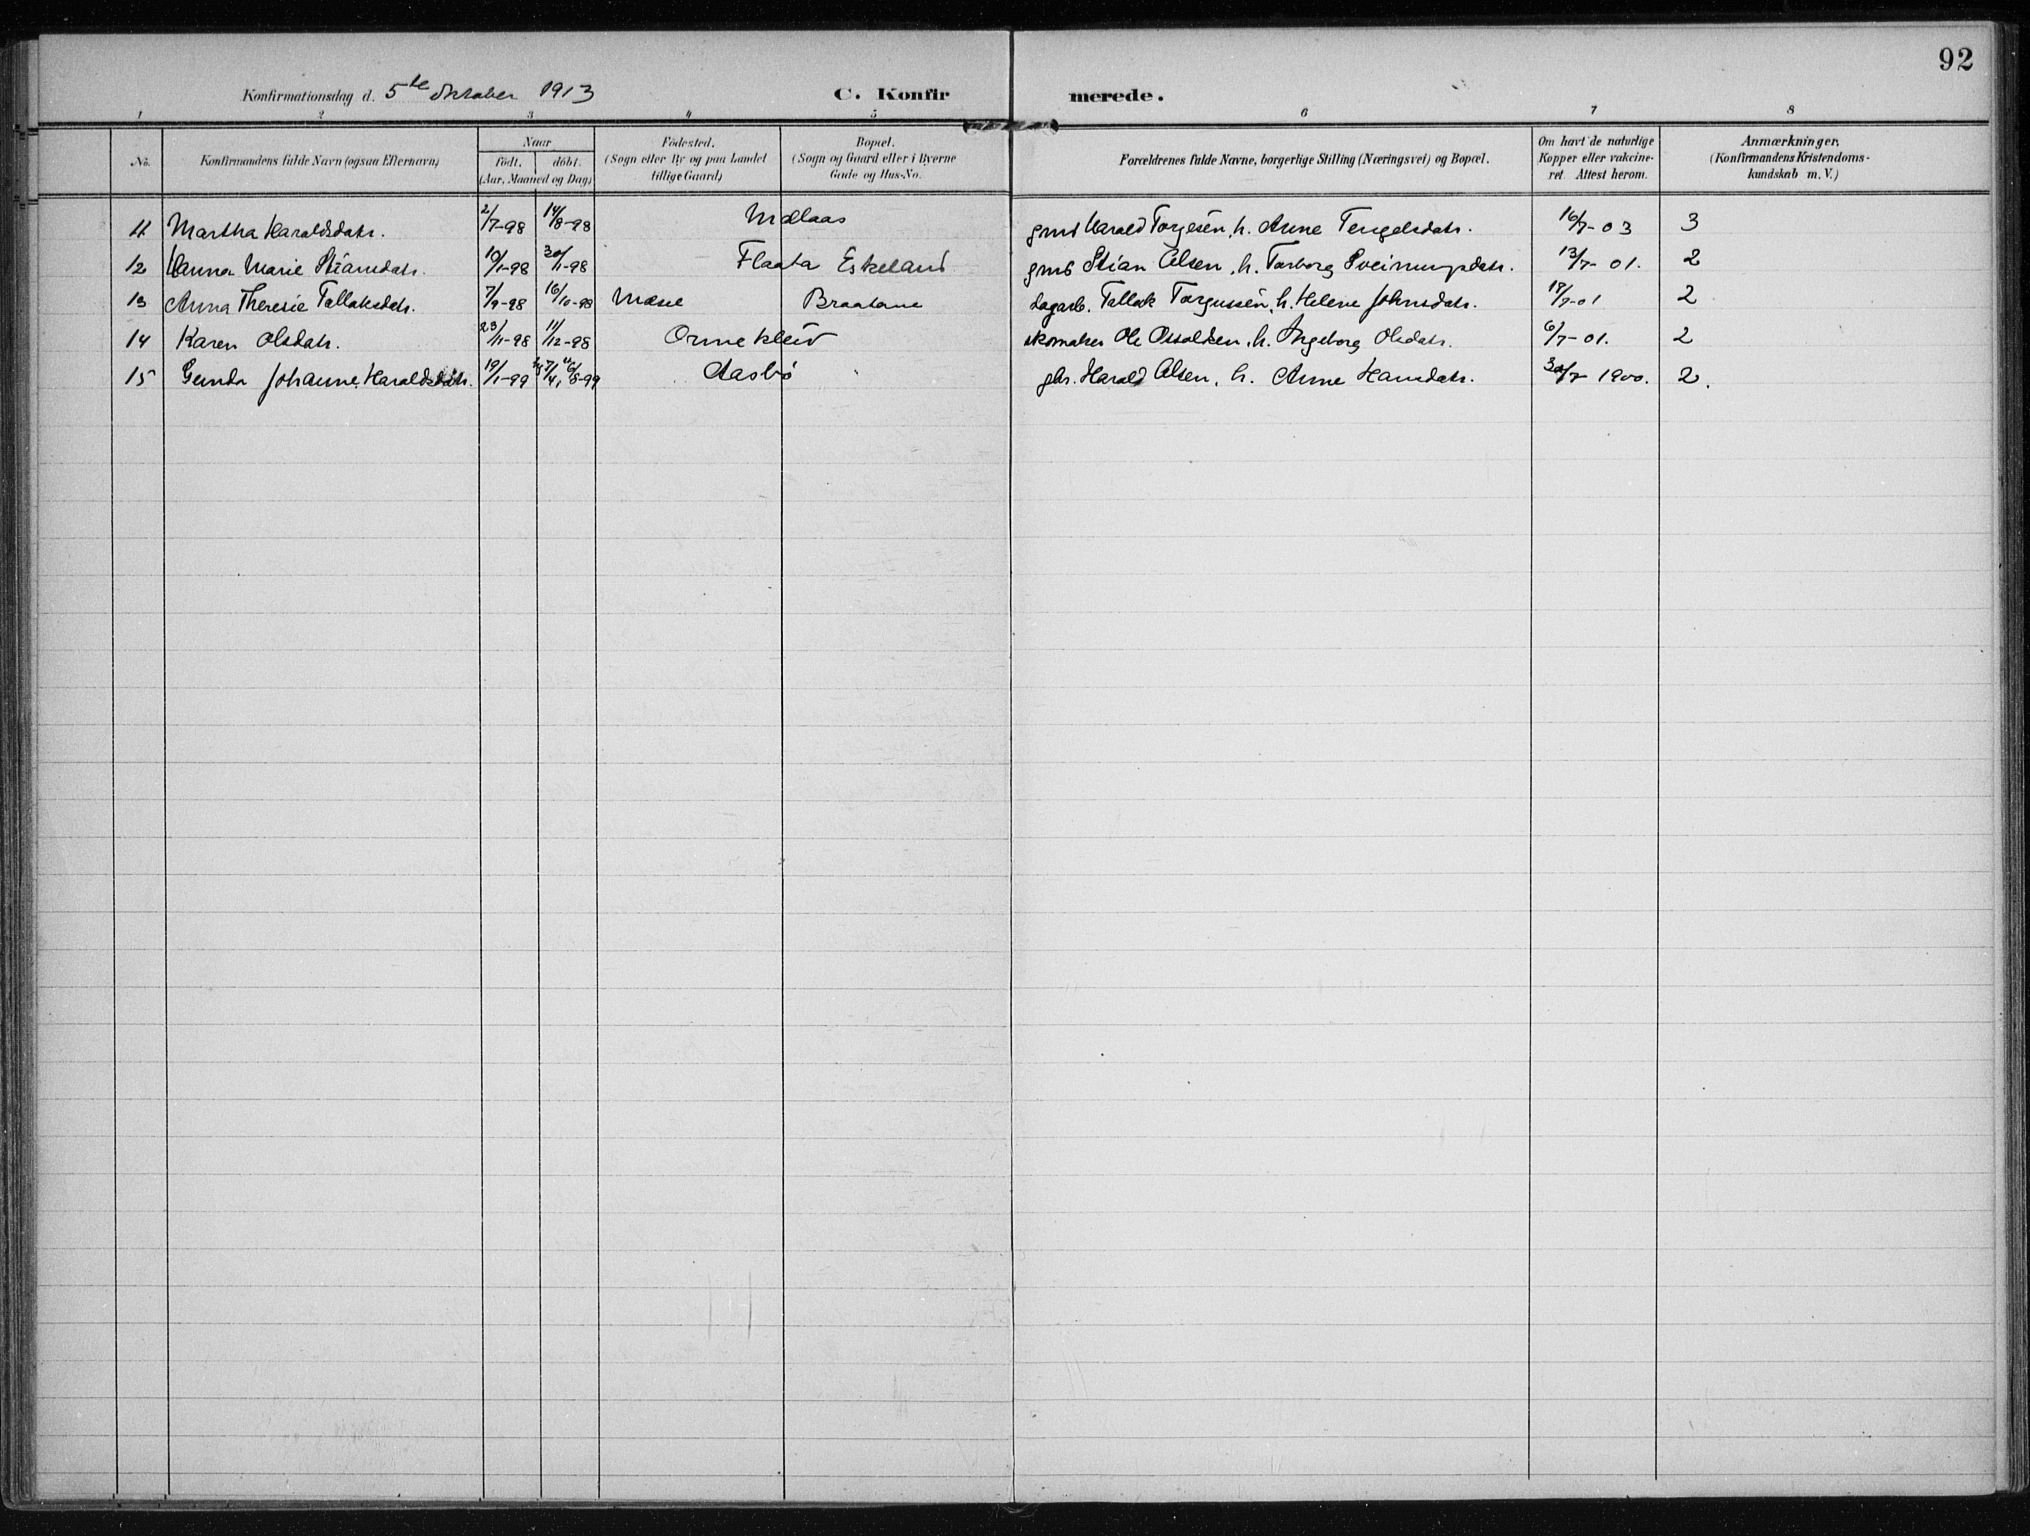 92
Konfirmationsdag d. 5te Oktober 1913 C. Konfirmerede.
1 2 3 4 5 6 7 8
No. Konfirmandens fulde Navn (ogsaa Efternavn) Naar födt. döbt. (Aar, Maaned og Dag) Födested. (Sogn eller By og paa Landet tillige Gaard) Bopæl. (Sogn og Gaard eller i Byerne Gade og Hus-No. Forældrenes fulde Navne, borgerlige Stilling (Næringsvei) og Bopæl. Om havt de naturlige Kopper eller vakcineret. Attest herom. Anmærkninger. (Konfirmandens Kristendomskundskab m. V.)
11 Martha Haraldsdatr. 2/7-98 14/8-98 Mølaas gmd Harald Torgesen, h. Anne Tengelsdatr. 16/7-03 3
12 Hanna Marie Stiansdatr. 10/1-98 30/1-98 Flaata Eskeland gmd Stian Olsen, h. Torborg Sveinungsdatr. 13/7-01. 2
13 Anna Theresie Tallaksdatr. 7/9-98 16/10-98 Mæsel Braatane dagarb. Tallak Torgussen, h. Helene Johnsdatr. 18/7-01 2
14 Karen Olsdatr. 23/11-98 11/12-98 Ormekleiv skomaker Ole Osvaldsen, h. Ingeborg Olsdatr. 6/7-01. 2
15 Gunda Johanne Haraldsdatr. 19/1-99 6/8-99 Aasbø gbr. Harald Olsen, h. Anne Hansdatr. 30/7 1900. 2.